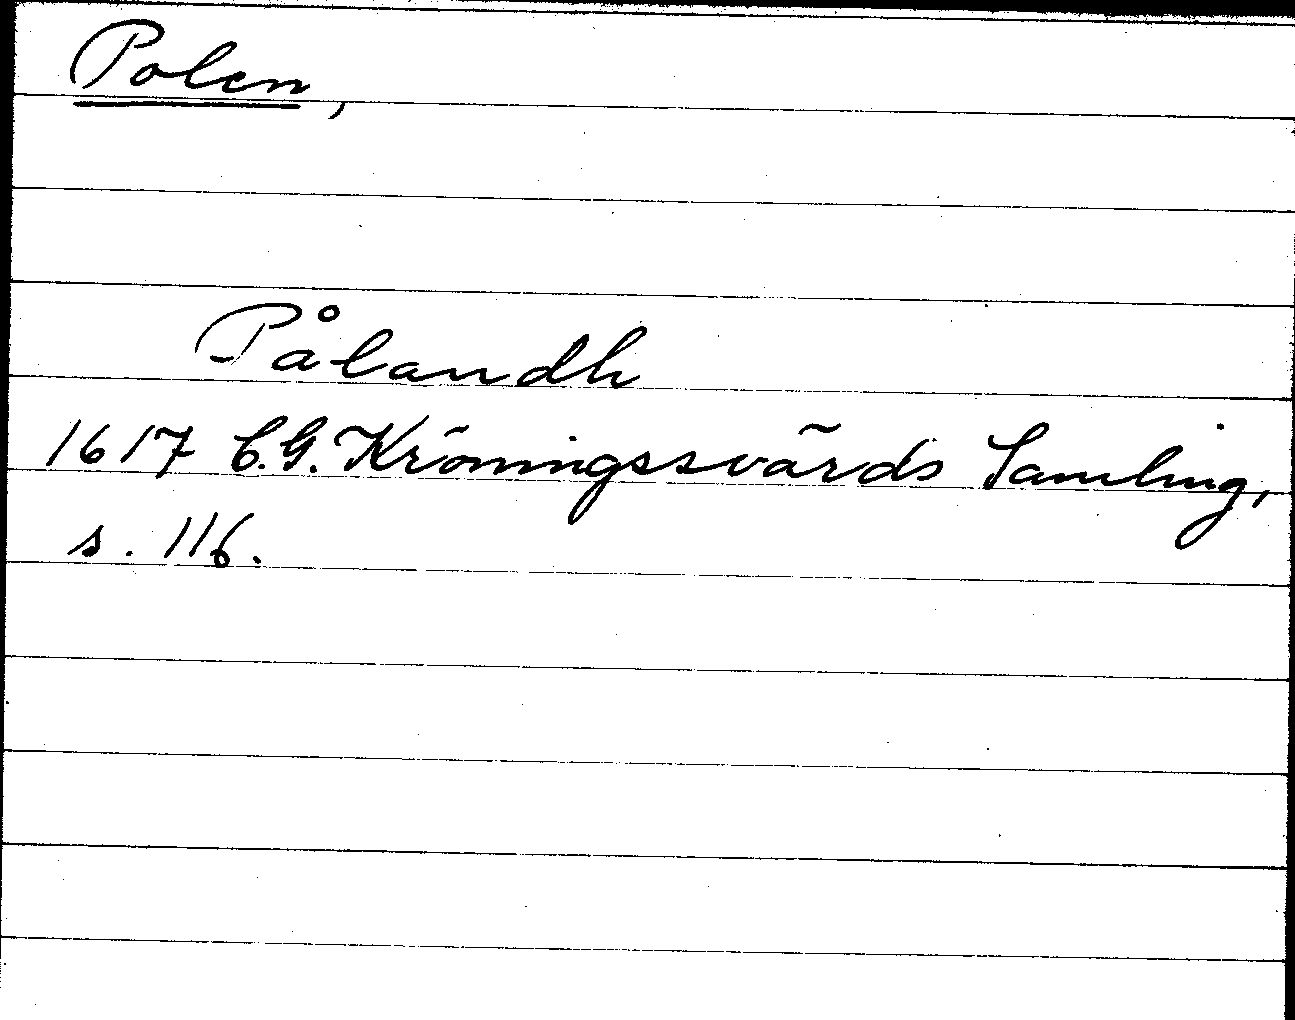 Polen,
Pålandh
1617 C.G. Kröningssvärds Samling,
s. 116.